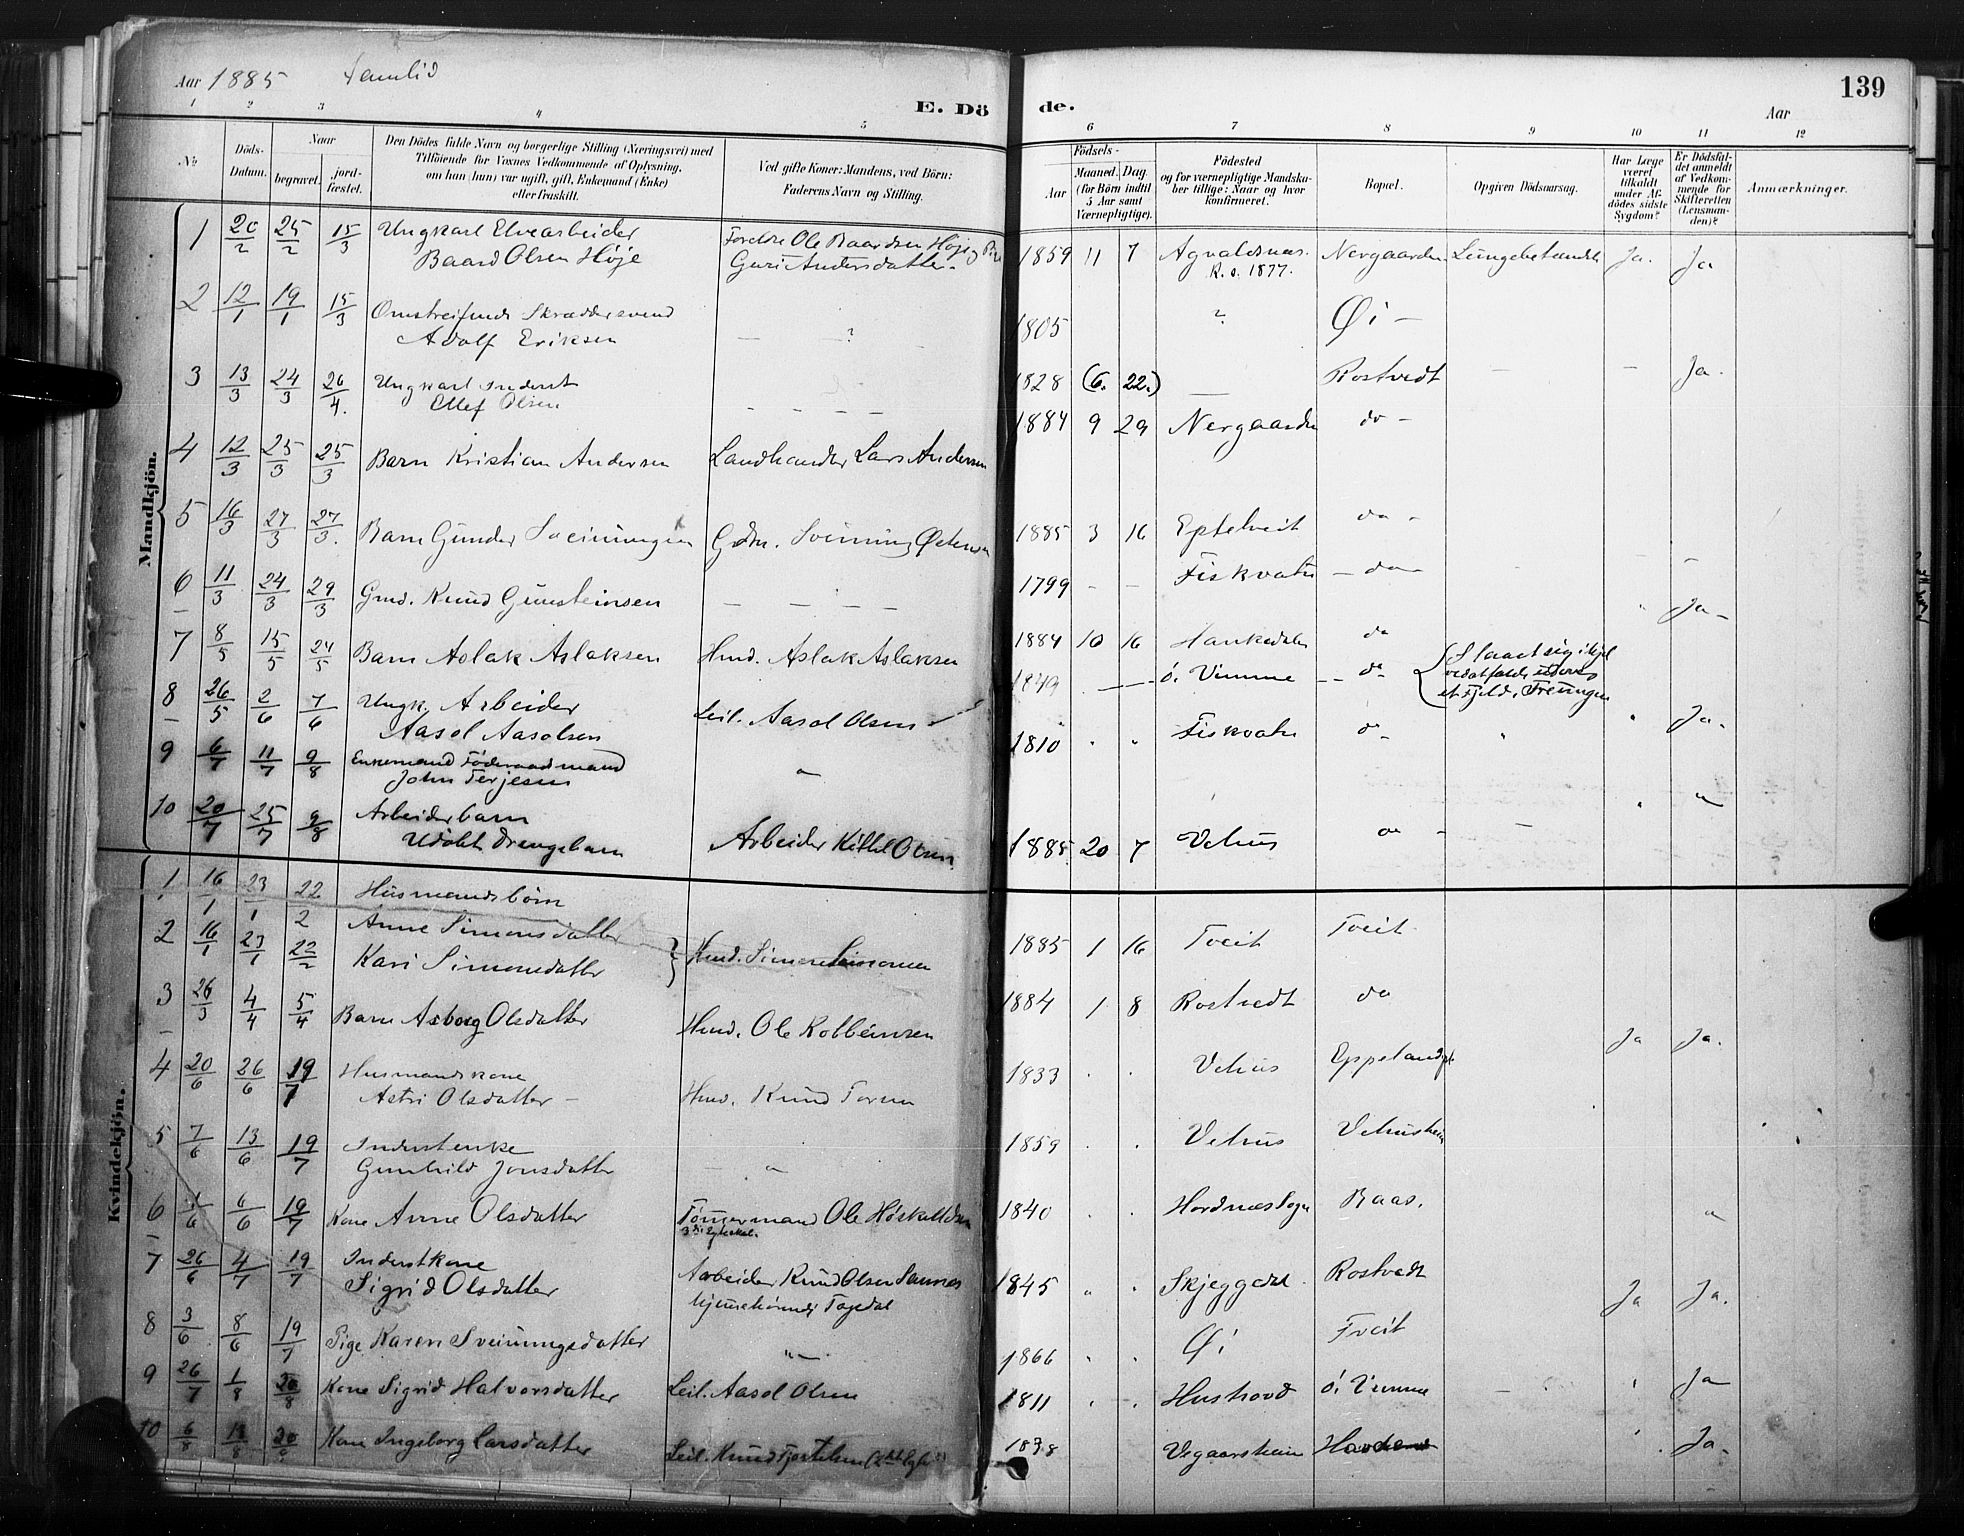 Aar 1885
E. Dö de.
139
Aar
1 2 3 4 5 6 7 8 9 10 11 12
№
Döds-Datum.
Naar
begravet.
jord-fæstet.
Den Dödes fulde Navn og borgerlige Stilling (Næringsvei) med
Tilföiende for Voxnes Vedkommende af Oplysning,
om han (hun) var ugift, gift, Enkemand (Enke)
eller fraskilt.
Ved gifte Koner: Mandens, ved Börn:
Faderens Navn og Stilling.
Födsels-
Aar
Maaned. Dag
(for Börn indtil
5 Aar samt
Værnepligtige).
Födested
og for værnepligtige Mandska-
ber tillige: Naar og hvor
konfirmeret.
Bopæl.
Opgiven Dödsaarsag.
Har Læge
været
tilkaldt
under Af-
dödes sidste
Sygdom?
Er Dödsfal-
det anmeldt
af Vedkom-
mende for
Skifteretten
(Lensman-
den)?
Anmærkninger.
Mandkjön.
1 20/2 25/2 15/3 Ungkarl Elvearbeider Foreldre Ole Baardsen Høje og
Baard Olsen Høje Guri Andersdatter. 1859 11 7 Nergaarden Lungebetændelse Ja. Ja
K. o. 1877.
2 12/1 19/1 15/3 Omstreifende Skræddersvend
Adolf Eriksen — ? 1805 ? Øi —
3 13/3 24/3 26/4. Ungkarl Inderst
Ellef Olsen — — — — 1828 (6. 22.) — Rostvedt — — Ja.
4 12/3 25/3 25/3 Barn Kristian Andersen Landhandler Lars Andersen 1884 9 29 Nergaarden do —
5 16/3 27/3 27/3. Barn Gunder Sveinungsen Sveinung 1885 3 16 Eptetveit do -
6 11/3 24/3 29/3 Gmd. Knud Gunsteinsen — — — — 1799 - - Fiskvatn — do — Ja -
7 8/5 15/5 24/5 Barn Aslak Aslaksen Hmd. Aslak Aslaksen 1884 10 16 Haukedalen do
8 26/5 2/6 7/6 Ungk. Arbeider
Aasol Aasolsen Leil. Aasol Olsen 1849 — ö. Vimme — do Slaaet sig ihjel
et Fjeld i Treungen Ja.
9 6/7 11/7 9/8 Enkemand Föderaadmand
John Terjesen 1810 Fiskvatn do
10 20/7 25/7 9/8 Arbeiderbarn
Udöbt Drengebarn Arbeider Kittil Olsen 1885 20 7 Vehus do - —
Kvindekjön.
1 16/1 23/1 22/2 Husmandsbörn
Anne Simonsdatter
2 16/1 23/1 22/2 Kari Simonsdatter } Hmd. Simon Simonsen 1885 1 16 Tveit Tveit
3 26/3 4/4 5/4 Barn Asborg Olsdatter Hmd. Ole Kolbeinsen 1884 1 8 Rostvedt do
4 20/6 26/6 19/7 Husmandskone
Astri Olsdatter — Hmd. Knud 1833 Vehus Ja Ja.
5 7/6 13/6 19/7 Inderstenke
Gunhild Jonsdatter — 1859 Vehus Vehusheia
6 1/6 6/6 19/7 Kone Anne Olsdatter Tömmermand Ole Höskuldsen 1840 Hordnæs Sogn Baas.
7 26/6 4/7 19/7 Inderstkone
Sigrid Olsdatter Arbeider Knud Olsen Sannes 1845 Skjeggedal. Rostvedt Ja Ja.
8 3/6 8/6 19/7 Pige Karen Sveinungsdatter 1866 Øi Tveit
9 26/7 1/8 30/8 Kone Sigrid Halvorsdatter Leil. Aasol Olsen 1811 ö. Vimme — Ja
10 6/8 13/8 Kone Ingeborg Larsdatter Leil. Knud 1838 Vegaarsheien Ja.